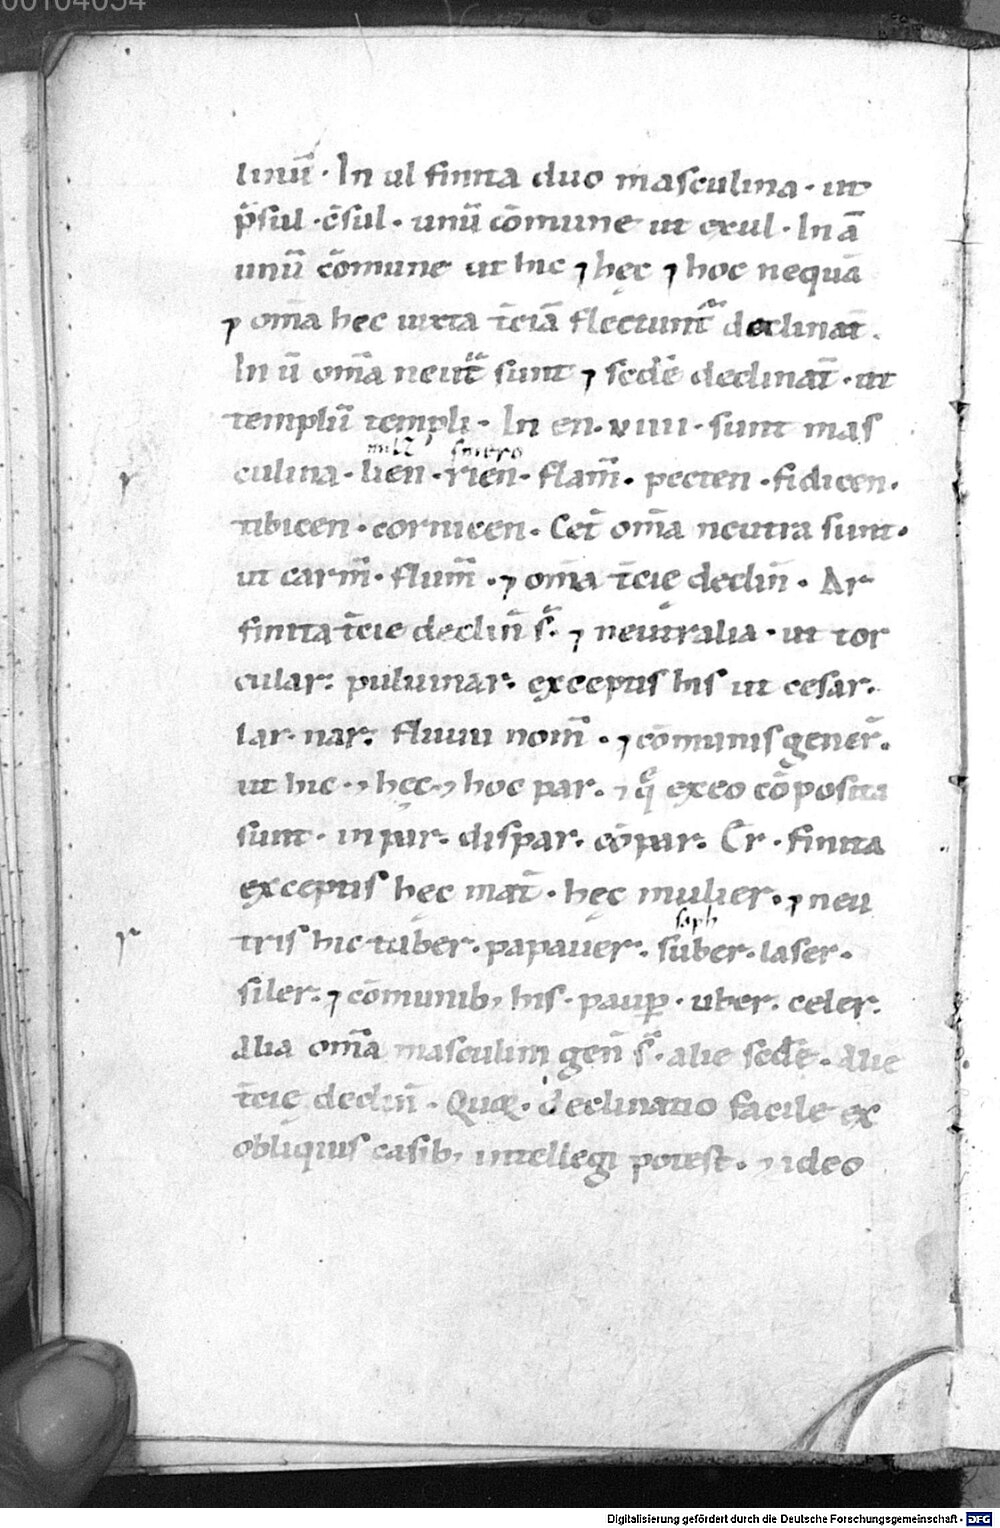 00104054
linū · In ul finita duo masculina · ut
p̄sul · c̄sul · unū cōmune ut exul · In ā
unū cōmune ut hic ⁊ hęc ⁊ hoc nequā
⁊ om̄a hec iuxta t̄ciā flectunt᷑ declinat̄ .
In ū om̄a neut᷑ sunt ⁊ scdē declinat̄ · ut
templū templi · In en · viiii · sunt mas
milz
culina · lien · rien · flam̄ · pecten · fidicen ·
tibicen · cornicen · Cet̄ om̄a neutra sunt ·
ut carm̄ · flum̄ · ⁊ om̄a t̄cię declin̄ · Ar
finita t̄cie declin̄ s̄ · ⁊ neutralia · ut tor
cular · puluinar · exceptis his ut cesar ·
lar · nar · fluuii nom̄ · ⁊ cōmunis gener̄ ·
ut hic · ⁊ hęc · ⁊ hoc par · ⁊ q̄ ex eo cōposita
sunt · inpar · dispar · cōpar · Er · finita
exceptis hec mat̄ · hęc mulier · ⁊ neu
saph
r tris hic tuber · papauer · suber · laser ·
siler · ⁊ cōmunib, his · paup̱ · uber · celer ·
Alia om̄a masculini gen̄ s̄ · alie scdę · alie
t̄cię declin̄ · Quoꝝ · declinatio facile ex
obliquis casib, intellegi potest · ⁊ ideo
Digitalisierung gefördert durch die Deutsche Forschungsgemeinschaft - DFG